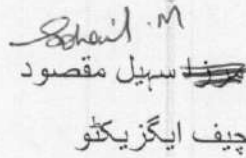 Sohail .M
سہیل مقصود
چیف ایگزیکٹو